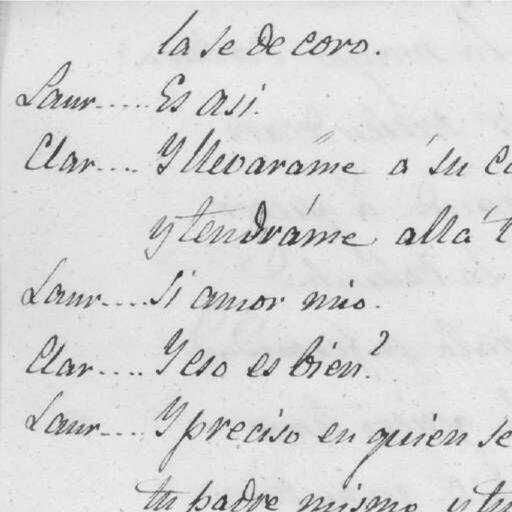 la se de coro.
Laur..... Es asi.
Clar.... Y llevaráme á su
y tendráme allá
Laur..... Si amor mio.
Clar..... Y eso es bien?
Laur.... Y preciso en quien se
tu padre mismo, y tu